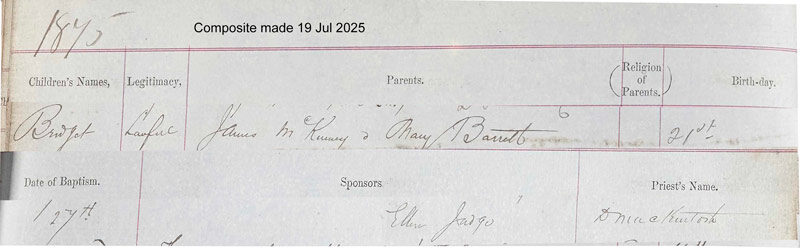 1875
Composite made 19 Jul 2025
Children's Names, Legitimacy, Parents. (Religion of Parents.) Birth-day.
Bridget Lawful James McKinney & Mary Barrett 21st
Date of Baptism. Sponsors Priest's Name.
27th Ellen D Mackintosh